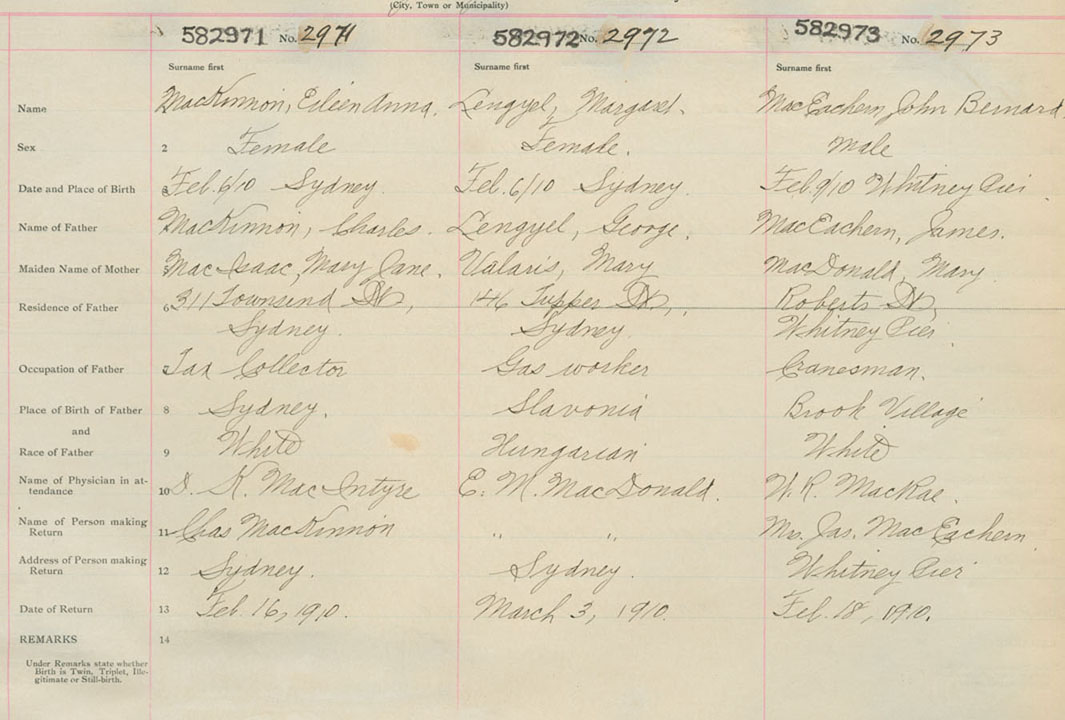 (City, Town or Municipality)
582971 No. 2971 582972 No. 2972 582973 No. 2973
Surname first Surname first Surname first
Name MacKinnon, Eileen Anna. Lengyel, Margaret. MacEachern, John Bernard
Sex 2 Female Female. Male
Date and Place of Birth 3 Feb. 6/10 Sydney. Feb. 6/10 Sydney. Feb. 9/10 Whitney Pier
Name of Father MacKinnon, Charles. Lengyel, George. MacEachern, James.
Maiden Name of Mother MacIsaac, Mary Jane. Valaris, Mary MacDonald, Mary
Residence of Father 6 311 Townsend St, 146 Tupper St, Roberts St,
Sydney. Sydney. Whitney Pier
Occupation of Father Tax Collector Gas worker Cranesman.
Place of Birth of Father 8 Sydney. Slavonia Brook Village
and
Race of Father 9 White Hungarian White
Name of Physician in at-
tendance 10 D. K. MacIntyre E. M. MacDonald. W. R. MacRae.
Name of Person making
Return 11 Chas MacKinnon " " Mrs. Jas. MacEachern
Address of Person making
Return 12 Sydney. Sydney. Whitney Pier
Date of Return 13 Feb. 16, 1910. March 3, 1910. Feb. 18, 1910.
REMARKS 14
Under Remarks state whether
Birth is Twin, Triplet, Ille-
gitimate or Still-birth.